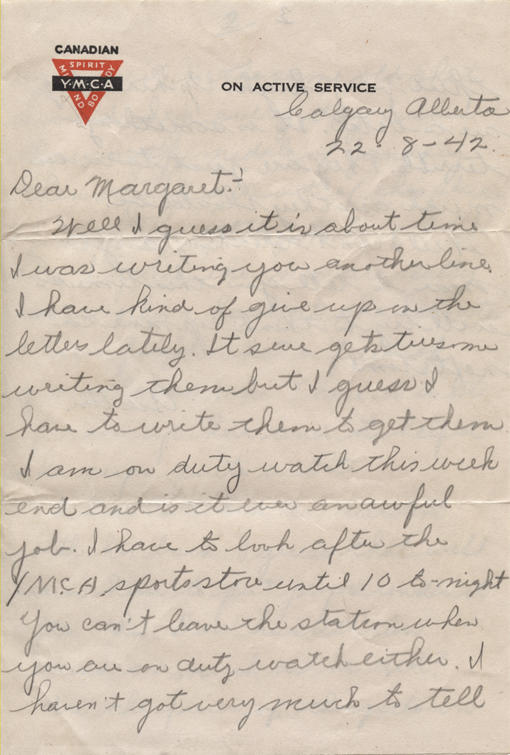 CANADIAN
SPIRIT
MIND
BODY
Y·M·C·A
ON ACTIVE SERVICE
Calgary Alberta
22-8-42.
Dear Margaret:-
Well I guess it is about time
I was writing you another line.
I have kind of give up on the
letters lately. It sure gets tiresome
writing them but I guess I
have to write them to get them
I am on duty watch this week
end and is it ever an awful
job. I have to look after the
YMCA sports store until 10 to-night
You can't leave the station when
you are on duty watch either. I
haven't got very much to tell